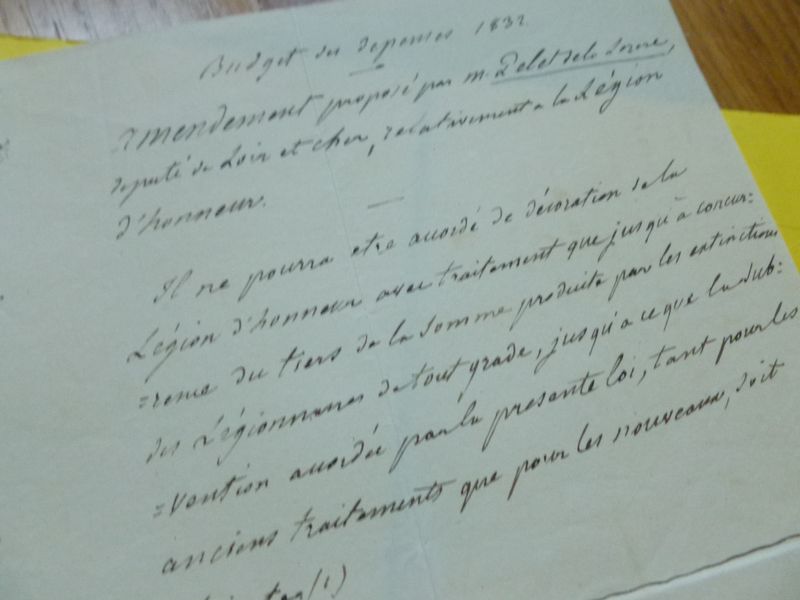 Budget des depenses 1832.
Amendement proposé par m. Pelet de la Lozere,
deputé de Loir et cher, relativement a la Légion
d'honneur.
Il ne pourra etre accordé de décoration de la
Légion d'honneur avec traitement que jusqu'à concur=
=rence du tiers de la somme produite par les extinctions
des Légionnaires de tout grade, jusqu'a ce que la sub=
=vention accordée par la presente loi, tant pour les
anciens traitements que pour les nouveaux, soit
(1)